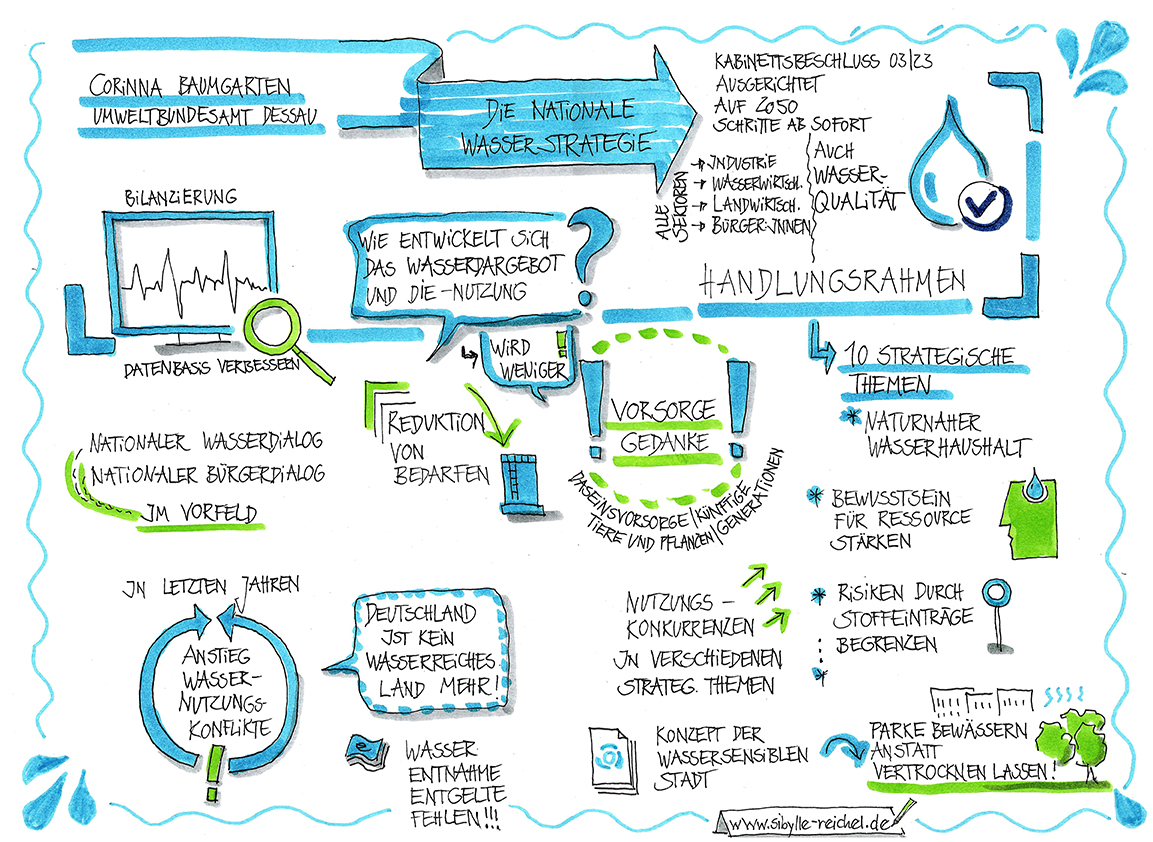 CORINNA BAUMGARTEN
UMWELTBUNDESAMT DESSAU
DIE NATIONALE
WASSERSTRATEGIE
KABINETTSBESCHLUSS 03/23
AUSGERICHTET
AUF 2050
SCHRITTE AB SOFORT
ALLE
SEKTOREN
→ INDUSTRIE
→ WASSERWIRTSCH.
→ LANDWIRTSCH.
→ BÜRGER:INNEN
AUCH
WASSER-
QUALITÄT
HANDLUNGSRAHMEN
BILANZIERUNG
DATENBASIS VERBESSERN
WIE ENTWICKELT SICH
DAS WASSERDARGEBOT
UND DIE -NUTZUNG
?
WIRD
WENIGER
!
REDUKTION
VON
BEDARFEN
! VORSORGE !
GEDANKE
DASEINSVORSORGE/KÜNFTIGE
TIERE UND PFLANZEN/GENERATIONEN
10 STRATEGISCHE
THEMEN
* NATURNAHER
WASSERHAUSHALT
* BEWUSSTSEIN
FÜR RESSOURCE
STÄRKEN
* RISIKEN DURCH
STOFFEINTRÄGE
BEGRENZEN
*
NATIONALER WASSERDIALOG
NATIONALER BÜRGERDIALOG
IM VORFELD
IN LETZTEN JAHREN
ANSTIEG
WASSER-
NUTZUNGS-
KONFLIKTE
!
DEUTSCHLAND
IST KEIN
WASSERREICHES
LAND MEHR!
WASSER
ENTNAHME
ENTGELTE
FEHLEN!!!
NUTZUNGS-
KONKURRENZEN
IN VERSCHIEDENEN
STRATEG. THEMEN
KONZEPT DER
WASSERSENSIBLEN
STADT
PARKE BEWÄSSERN
ANSTATT
VERTROCKNEN LASSEN!
www.sibylle-reichel.de